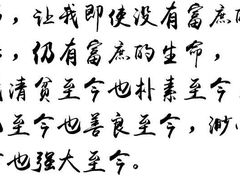 ，让我即使没有富庶的
，仍有富庶的生命，
清贫至今也朴素至今
至今也善良至今，渺小
也强大至今。